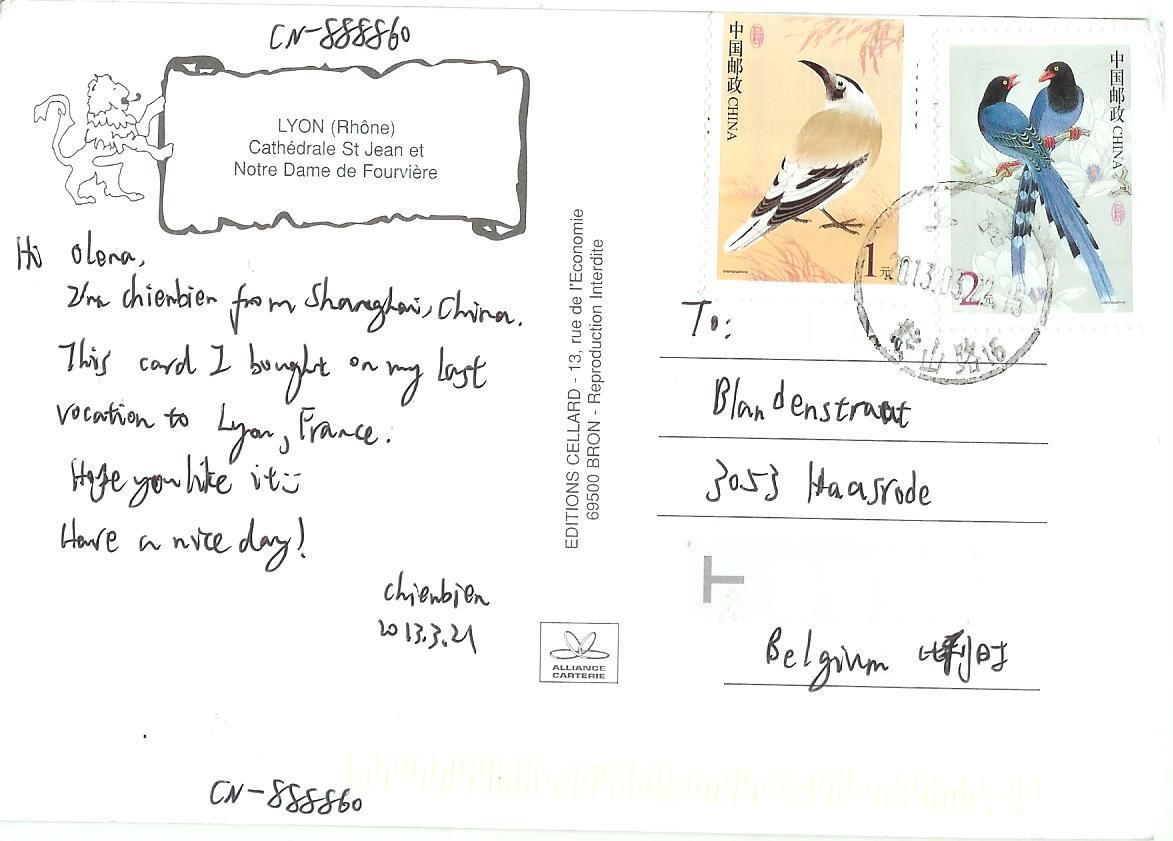 CN-888860
LYON (Rhône)
Cathédrale St Jean et
Notre Dame de Fourvière
Hi Olena,
I'm chienbien from Shanghai, China.
This card I bought on my last
vocation to Lyon, France.
Hope you like it
Have a nice day!
chienbien
2013.3.21
CN-888860
EDITIONS CELLARD - 13, rue de l'Economie
69500 BRON - Reproduction Interdite
ALLIANCE
CARTERIE
中国邮政 CHINA
1元
中国邮政 CHINA
2元
2013.03.22
山路
To:
Blandenstraat
3053 Haasrode
T
Belgium 比利时